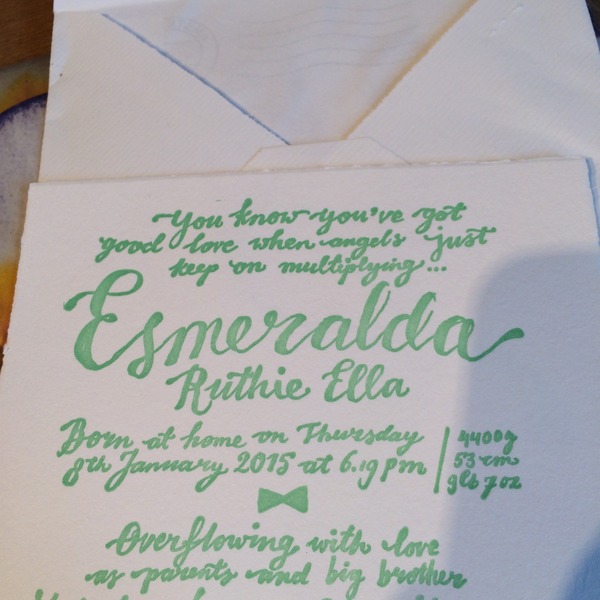 You know you've got
good love when angels just
keep on multiplying...
Esmeralda
Ruthie Ella
Born at home on Thursday
8th January 2015 at 6.19pm
4400g
53 cm
9lb 7oz
Overflowing with love
as parents and big brother